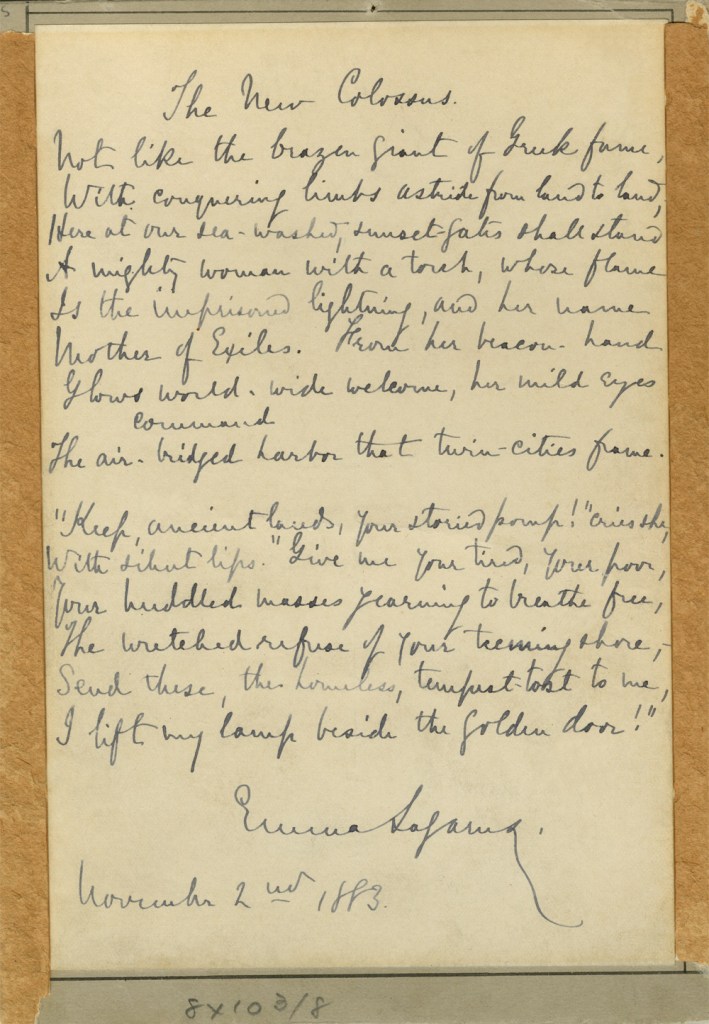 The New Colossus.
Not like the brazen giant of Greek fame,
With conquering limbs astride from land to land,
Here at our sea-washed, sunset-gates shall stand
A mighty woman with a torch, whose flame
Is the imprisoned lightning, and her name
Mother of Exiles. From her beacon-hand
Glows world-wide welcome, her mild eyes
command
The air-bridged harbor that twin-cities frame.
"Keep, ancient lands, your storied pomp!" cries she,
With silent lips. "Give me your tired, your poor,
Your huddled masses yearning to breathe free,
The wretched refuse of your teeming shore,-
Send these, the homeless, tempest-tost to me,
I lift my lamp beside the golden door!"
Emma Lazarus.
November 2nd 1883.
8x103/8